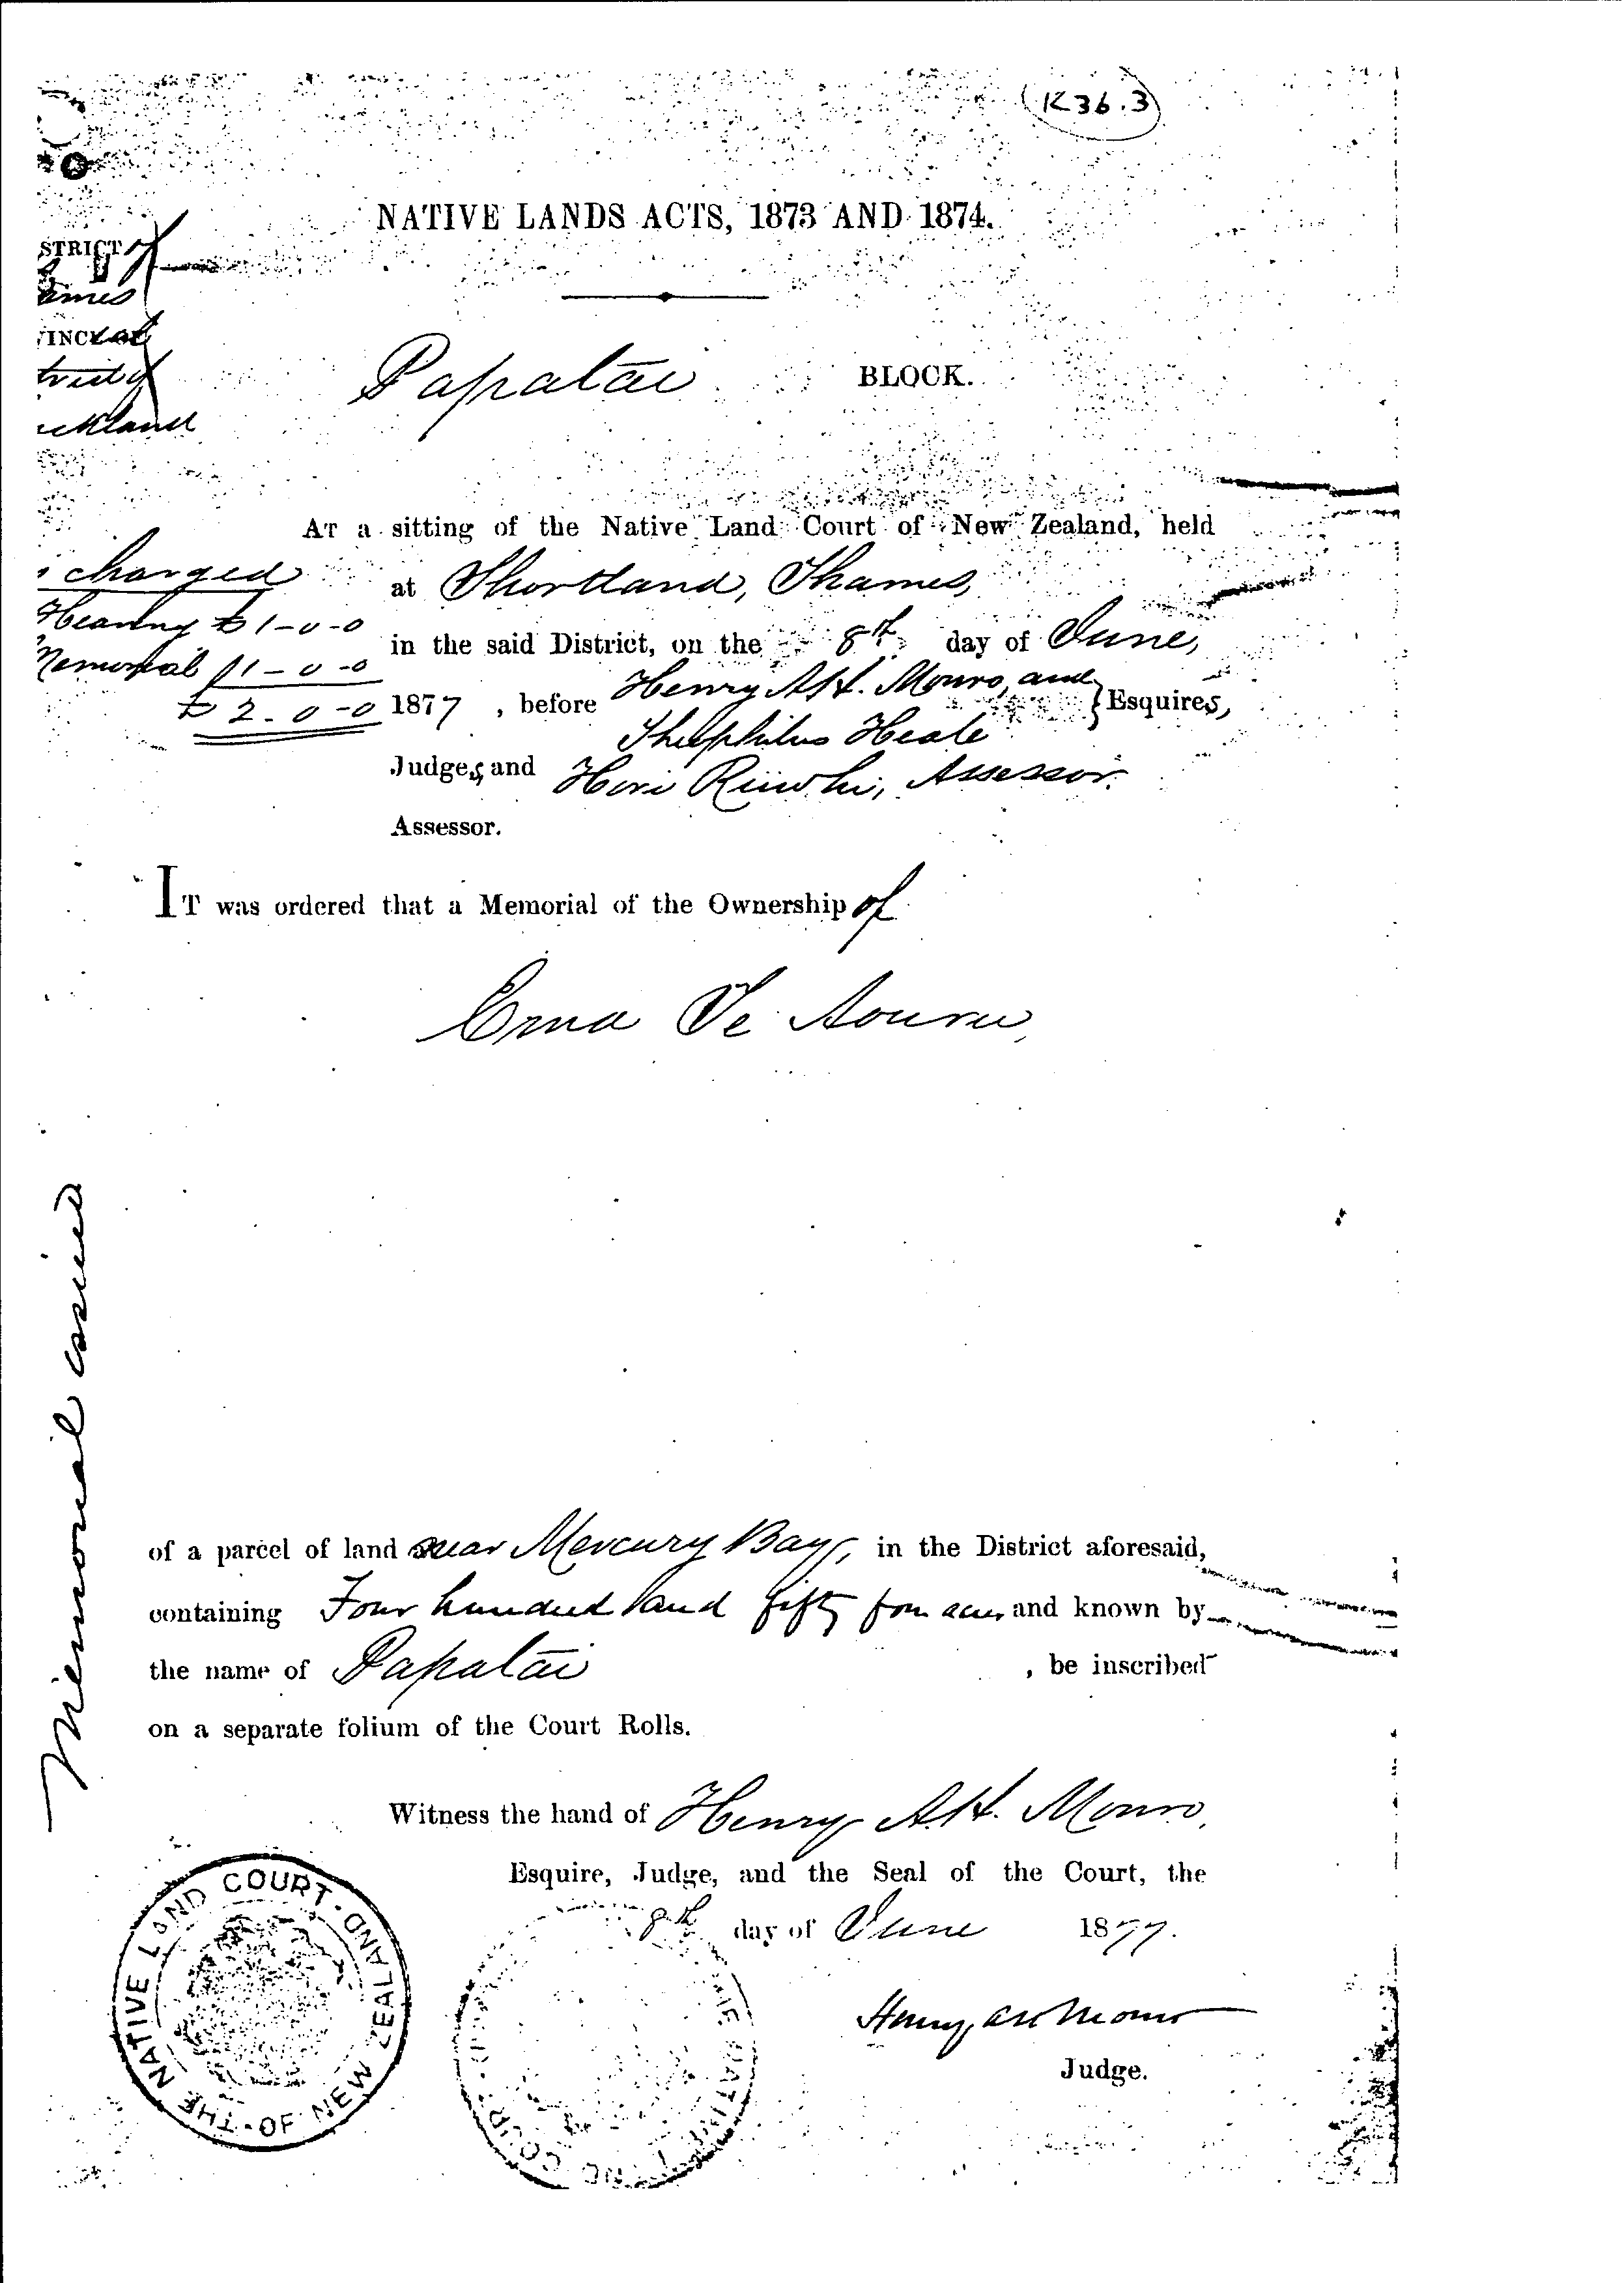 K36.3
NATIVE LANDS ACTS, 1873 AND 1874.
STRICT of
ames
VINCE OF
trict of
uckland
Papatai BLOCK.
AT a sitting of the Native Land Court of New Zealand, held
at Shortland, Thames,
in the said District, on the 8th day of June,
1877, before Henry A H. Monro, and Theophilus Heale } Esquires,
Judges, and Hori Riiwhi, Assessor.
Assessor.
charged
Hearing £ 1-0-0
Memorial £1-0-0
£ 2-0-0
IT was ordered that a Memorial of the Ownership of
Ema Te Aouru,
Memorial issued
of a parcel of land near Mercury Bay, in the District aforesaid,
containing Four hundred and fifty four acres and known by
the name of Papatai , be inscribed
on a separate folium of the Court Rolls.
Witness the hand of Henry A.H. Monro,
Esquire, Judge, and the Seal of the Court, the
8th day of June 1877.
Henry AH Monro
Judge.
THE NATIVE LAND COURT OF NEW ZEALAND